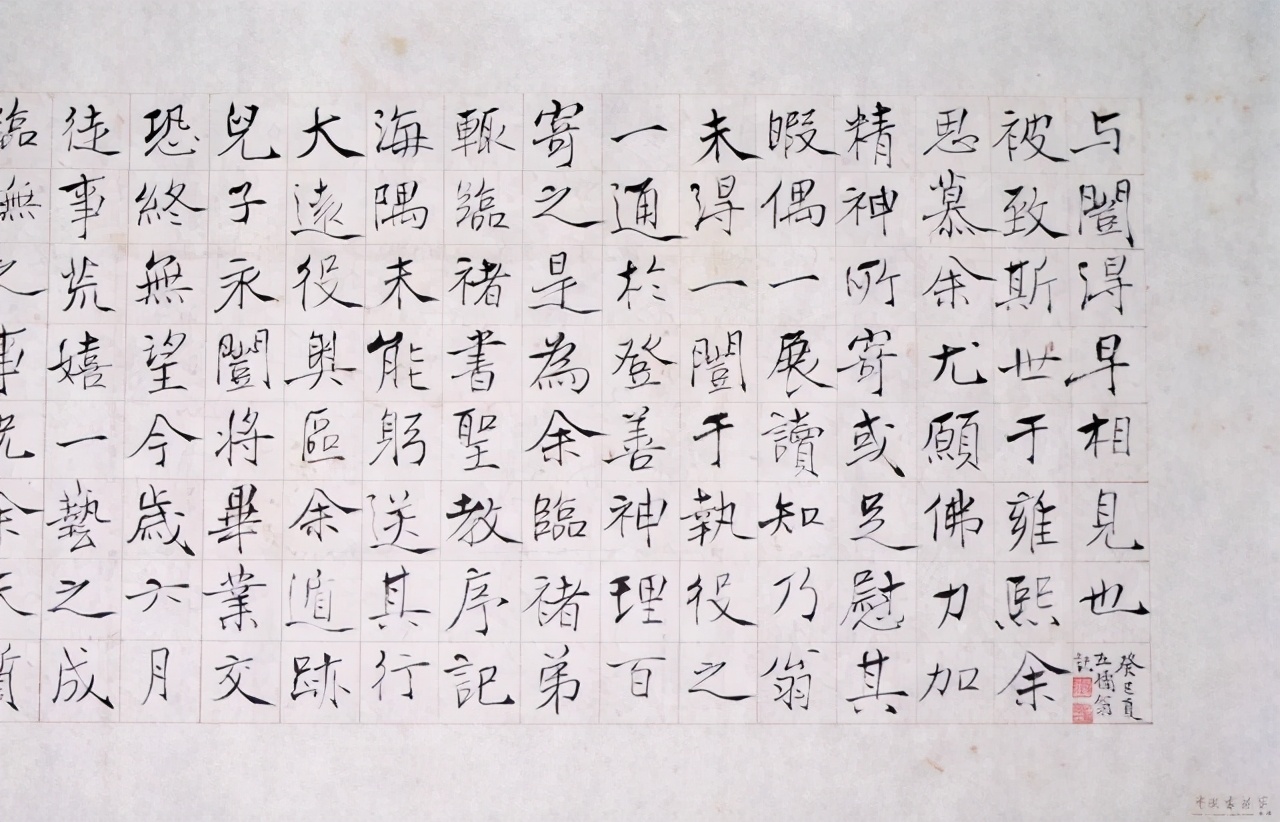 臨無之事況余天質
徒事荒嬉一藝之成
恐終無望今歲六月
兒子永闓將畢業交
大遠役奧區余遁跡
海隅未能躬送其行
輒臨褚書聖教序記
寄之是為余臨褚弟
一通於登善神理百
未得一闓于執役之
暇偶一展讀知乃翁
精神所寄或足慰其
思慕余尤願佛力加
被致斯世于雍熙余
与闓得早相見也
癸巳夏
五橘翁
記